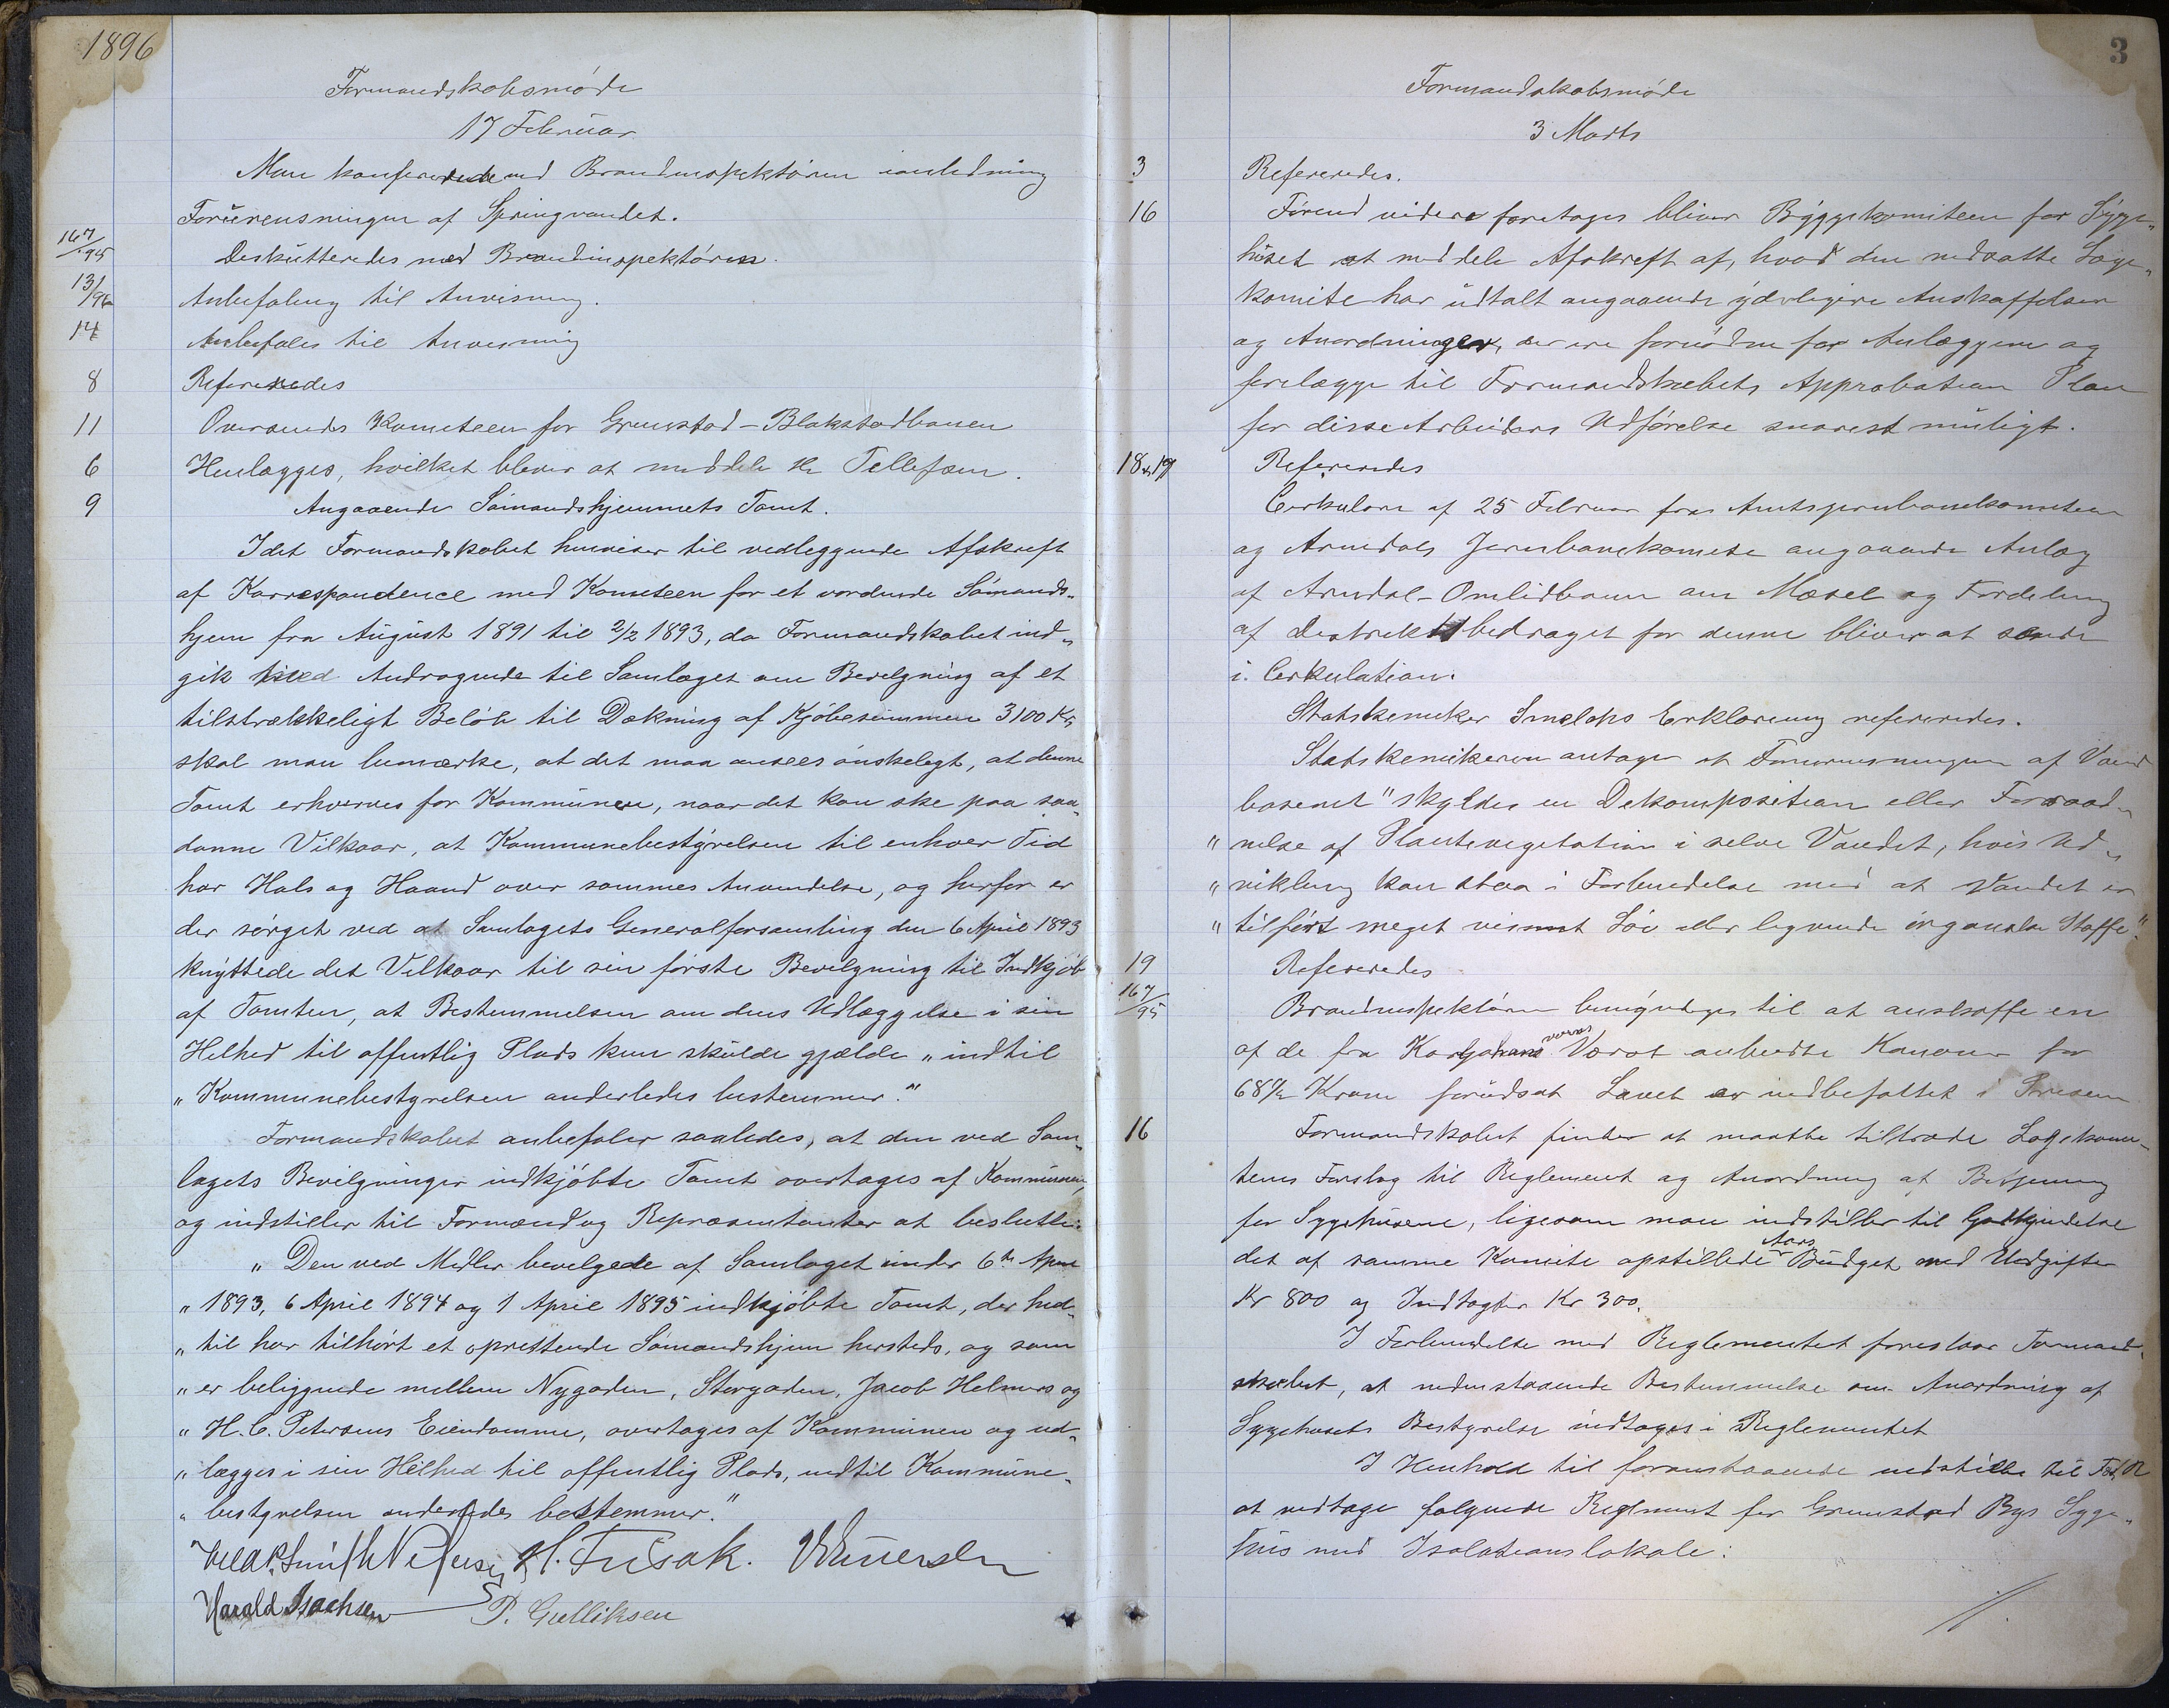 1896
Formandskabsmøde
17 Februar
Man konfererede med Brandinspektøren ianledning
Forurensningen af Springvandet.
167/95 Deskutteredes med Brandinspektøren.
13/96 Anbefaling til Anvisning.
14 Anbefales til Anvisning
8 Refereredes
11 Oversendes Komiteen for Grimstad-Blakstadbanen
6 Henlægges, hvilket bliver at meddele Hr Tellefsen.
9 Angaaende Sømandshjemmets Tomt.
Idet Formandskabet henviser til vedleggende Afskreft
af Korrespondence med Komiteen for et vordende Sømands-
hjem fra August 1891 til 2/2 1893, da Formandskabet ind-
gik med Andragende til Samlaget om Bevilgning af et
tilstrækkeligt Beløb til Dækning af Kjøbesummen 3100 Kr,
skal man bemærke, at det maa ansees ønskeligt, at denne
Tomt erhverves for Kommunen, naar det kan ske paa saa-
danne Vilkaar, at Kommunebestyrelsen til enhver Tid
har Hals og Haand over sammes Anvendelse, og herfor er
der sørget ved at Samlagets Generalforsamling den 6 April 1893
knyttede det Vilkaar til sin første Bevilgning til Indkjøb
af Tomten, at Bestemmelsen om dens Udlæggelse i sin
Helhed til offentlig Plads kun skulde gjælde „indtil
„Kommunebestyrelsen anderledes bestemmer."
Formandskabet anbefaler saaledes, at den ved Sam-
lagets Bevilgninger indkjøbte Tomt overtages af Kommunen,
og indstiller til Formænd og Repræsentanter at beslutte:
„Den ved Midler bevilgede af Samlaget under 6te April
„1893, 6 April 1894 og 1 April 1895 indkjøbte Tomt, der hid-
„til har tilhørt et oprettende Sømandshjem hersteds, og som
„er beliggende mellem Nygaden, Storgaden, Jacob Helmers og
„H. C. Petersens Eiendomme, overtages af Kommunen og ud-
„lægges i sin Helhed til offentlig Plads, indtil Kommune-
„bestyrelsen anderledes bestemmer."
Smith Petersen H. Frisak.
Harald Isachsen P. Gulliksen
3
Formandskabsmøde
3 Marts
3 Refereredes.
16 Førend videre foretages bliver Byggekomiteen for Syge-
huset at meddele Afskreft af, hvad den nedsatte Læge-
komite har udtalt angaaende yderligere Anskaffelser
og Anordninger, der ere fornødne for Anlæggene og
forelægge til Formandskabets Approbation Plan
for disse Arbeiders Udførelse snarest muligt.
18 & 19 Refereredes
Cirkulære af 25 Februar fra Amtsjernbanekomiteen
og Arendals Jernbanekomite angaaende Anlæg
af Arendal-Omlidbanen om Mæsel og Fordeling
af Distriktsbedraget for denne bliver at sende
i Cirkulation.
Statskemiker Smelcks Erklæring refereredes.
Statskemikeren antager at Forurensningen af Vand-
basenet "skyldes en Dekomposition eller Forraad-
„nelse af Plantevegetation i selve Vandet, hvis Ud-
„vikling kan staa i Forbindelse med at Vandet er
„tilført meget vissent Løv eller lignende organiske Stoffe".
19 Refereredes
167/95 Brandinspektøren bemyndiges til at anskaffe en
af de fra Karljohans værns Værft anbudte Kanoner for
68 1/2 Krone forudsat Lavet er indbefattet i Prisen
16 Formandskabet finder at maatte tiltræde Lægekomi-
teens Forslag til Reglement og Anordning af Betjening
for Sygehusene, ligesom man indstiller til Godkjendelse
det af samme Komite opstillede Aars Budget med Udgifter
Kr 800 og Indtægter Kr 300.
I Forbindelse med Reglementet foreslaar Formand-
skabet, at nedenstaaende Bestemmelse om Anordning af
Sygehusets Bestyrelse indtages i Reglementet
I Henhold til foranstaaende indstilles til F & R
at vedtage følgende Reglement for Grimstad Bys Syge-
hus med Isolationslokale: